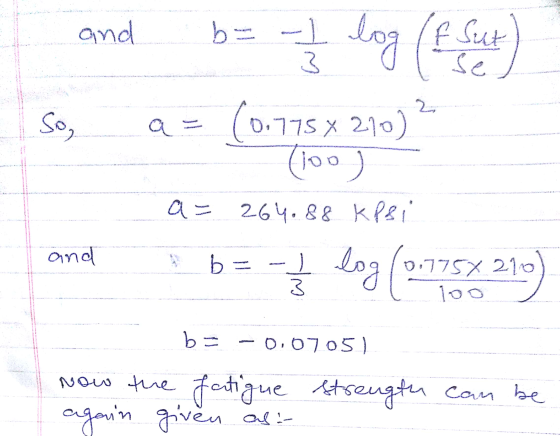 and b = -1/3 log (f Sut / Se)
So, a = (0.775 x 210)² / (100)
a = 264.88 kPsi
and b = -1/3 log (0.775 x 210 / 100)
b = -0.07051
Now the fatigue strength can be
again given as:-